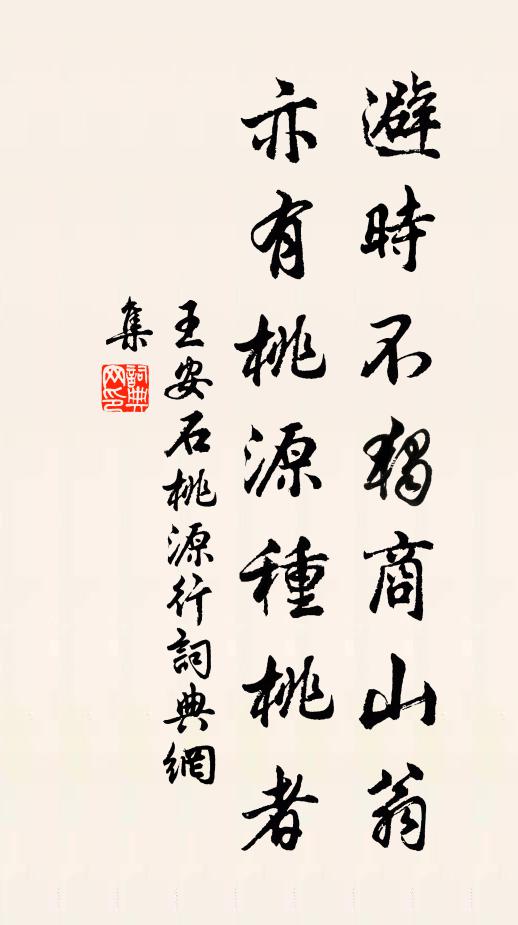 避時不獨商山翁
亦有桃源種桃者
王安石桃源行詞典網
集
詞典
网印